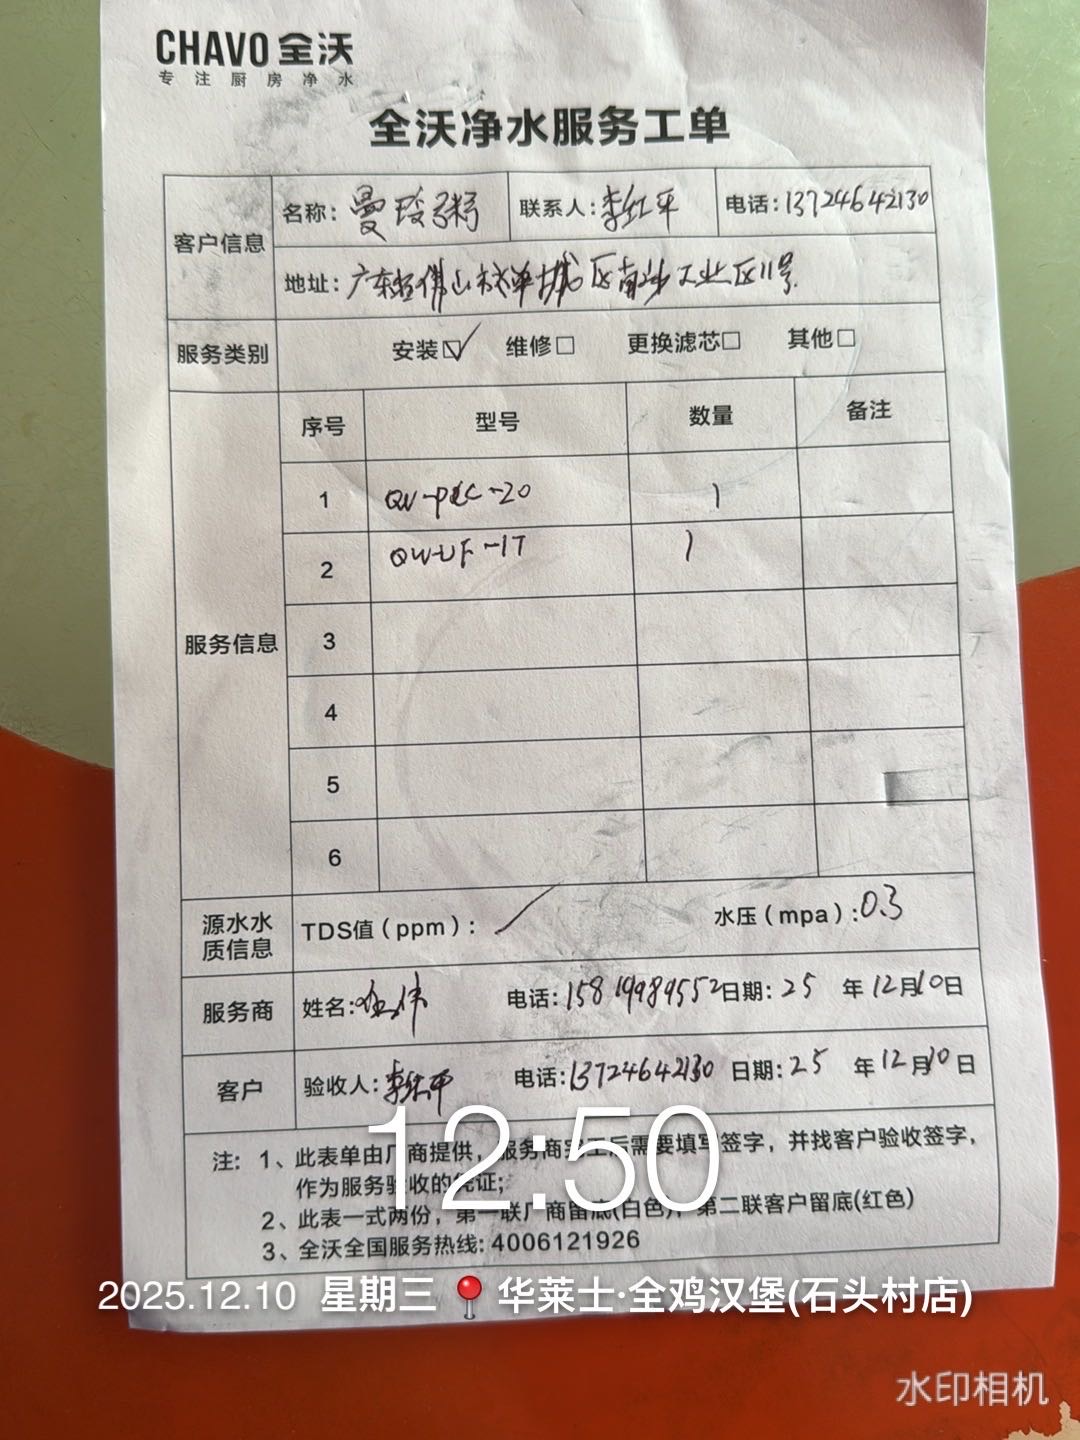 CHAVO 全沃
专注厨房净水
全沃净水服务工单
客户信息
名称：曼玲粥 联系人：李红平 电话：13724642130
地址：广东省佛山市禅城区南沙工业区11号
服务类别 安装☑ 维修□ 更换滤芯□ 其他□
服务信息
序号 型号 数量 备注
1 QW-PCC-20 1
2 QW-UF-1T 1
3
4
5
6
源水水质信息 TDS值（ppm）：/ 水压（mpa）：0.3
服务商 姓名： 电话：15819989552 日期：25 年 12月10日
客户 验收人：李红平 电话：13724642130 日期：25 年 12月10日
注：1、此表单由厂商提供，服务商完工后需要填写签字，并找客户验收签字，
作为服务验收的凭证；
2、此表一式两份，第一联厂商留底(白色)，第二联客户留底(红色)
3、全沃全国服务热线：4006121926
12:50
2025.12.10 星期三 📍华莱士·全鸡汉堡(石头村店)
水印相机